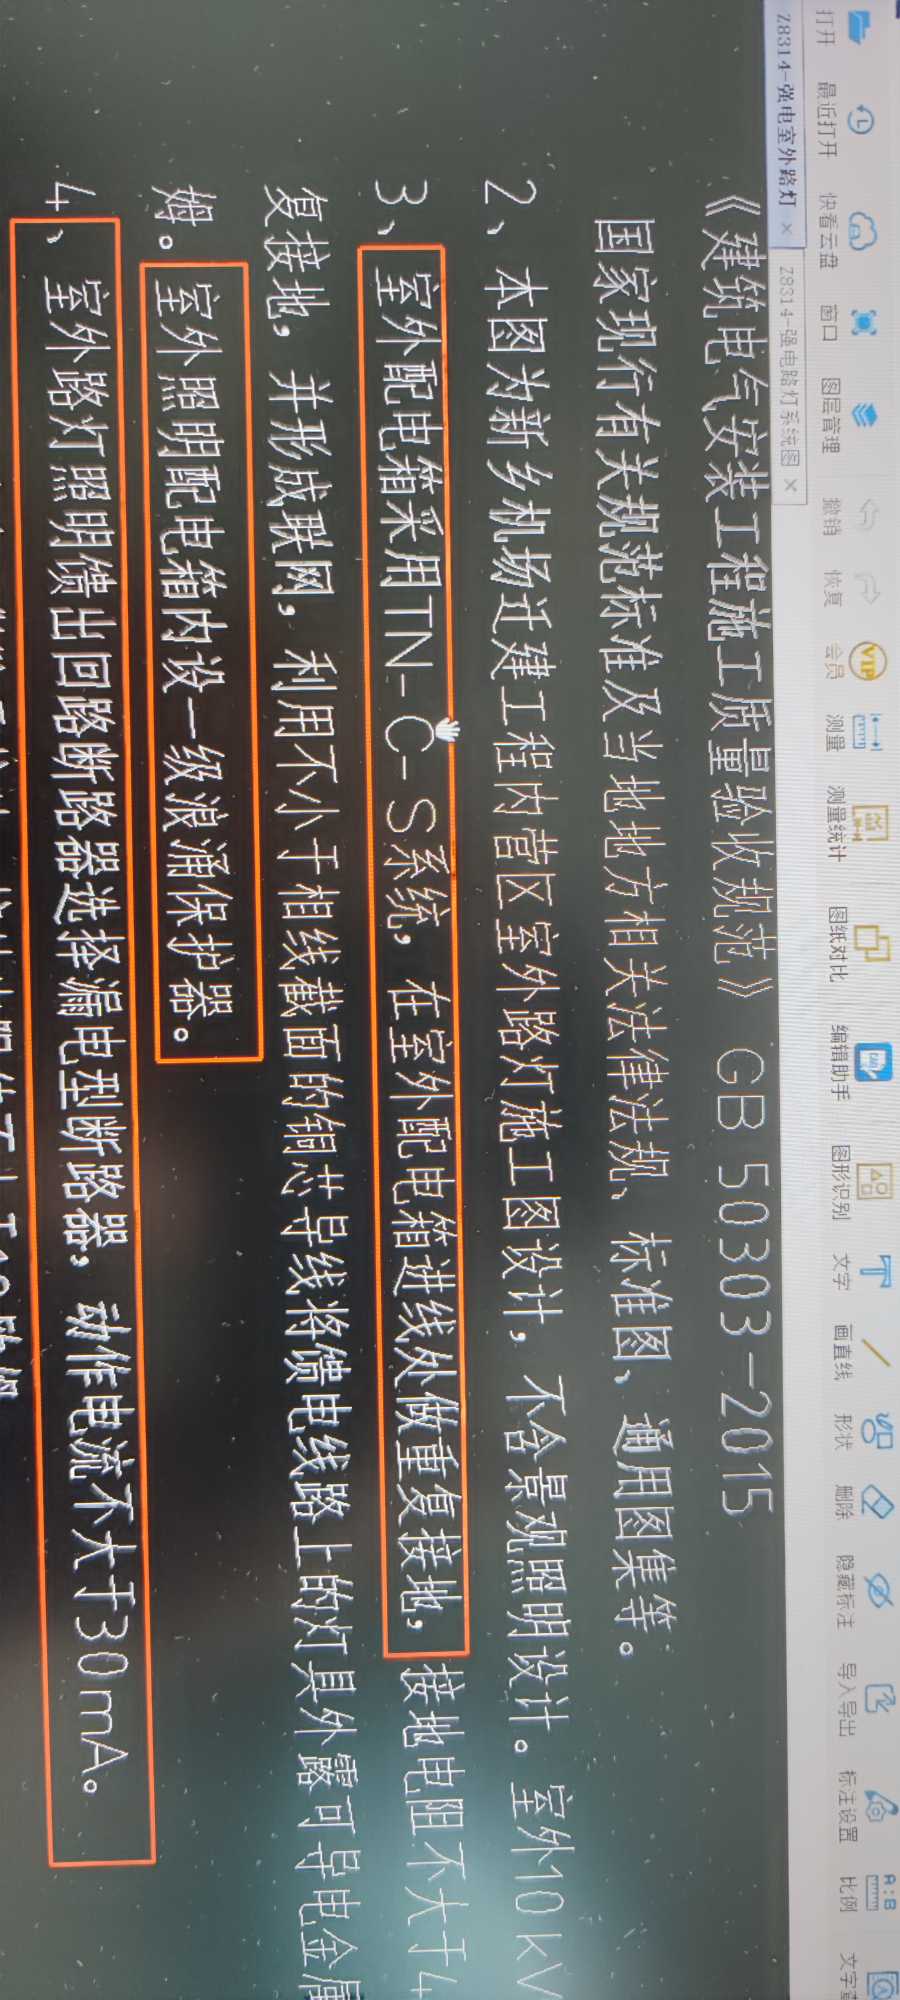 打开 最近打开 快看云盘 窗口 图层管理 撤销 恢复 会员 测量 测量统计 图纸对比 编辑助手 图形识别 文字 画直线 形状 删除 隐藏标注 导入导出 标注设置 比例
VIP
CAD
A:B
Z8314-强电室外路灯 × Z8314-强电路灯系统图 ×
《建筑电气安装工程施工质量验收规范》 GB 50303-2015
国家现行有关规范标准及当地地方相关法律法规、标准图、通用图集等。
2、本图为新乡机场迁建工程内营区室外路灯施工图设计，不含景观照明设计。室外10kV
3、室外配电箱采用TN-C-S系统，在室外配电箱进线处做重复接地，接地电阻不大于4
复接地，并形成联网，利用不小于相线截面的铜芯导线将馈电线路上的灯具外露可导电金属
姆。室外照明配电箱内设一级浪涌保护器。
4、室外路灯照明馈出回路断路器选择漏电型断路器，动作电流不大于30mA。